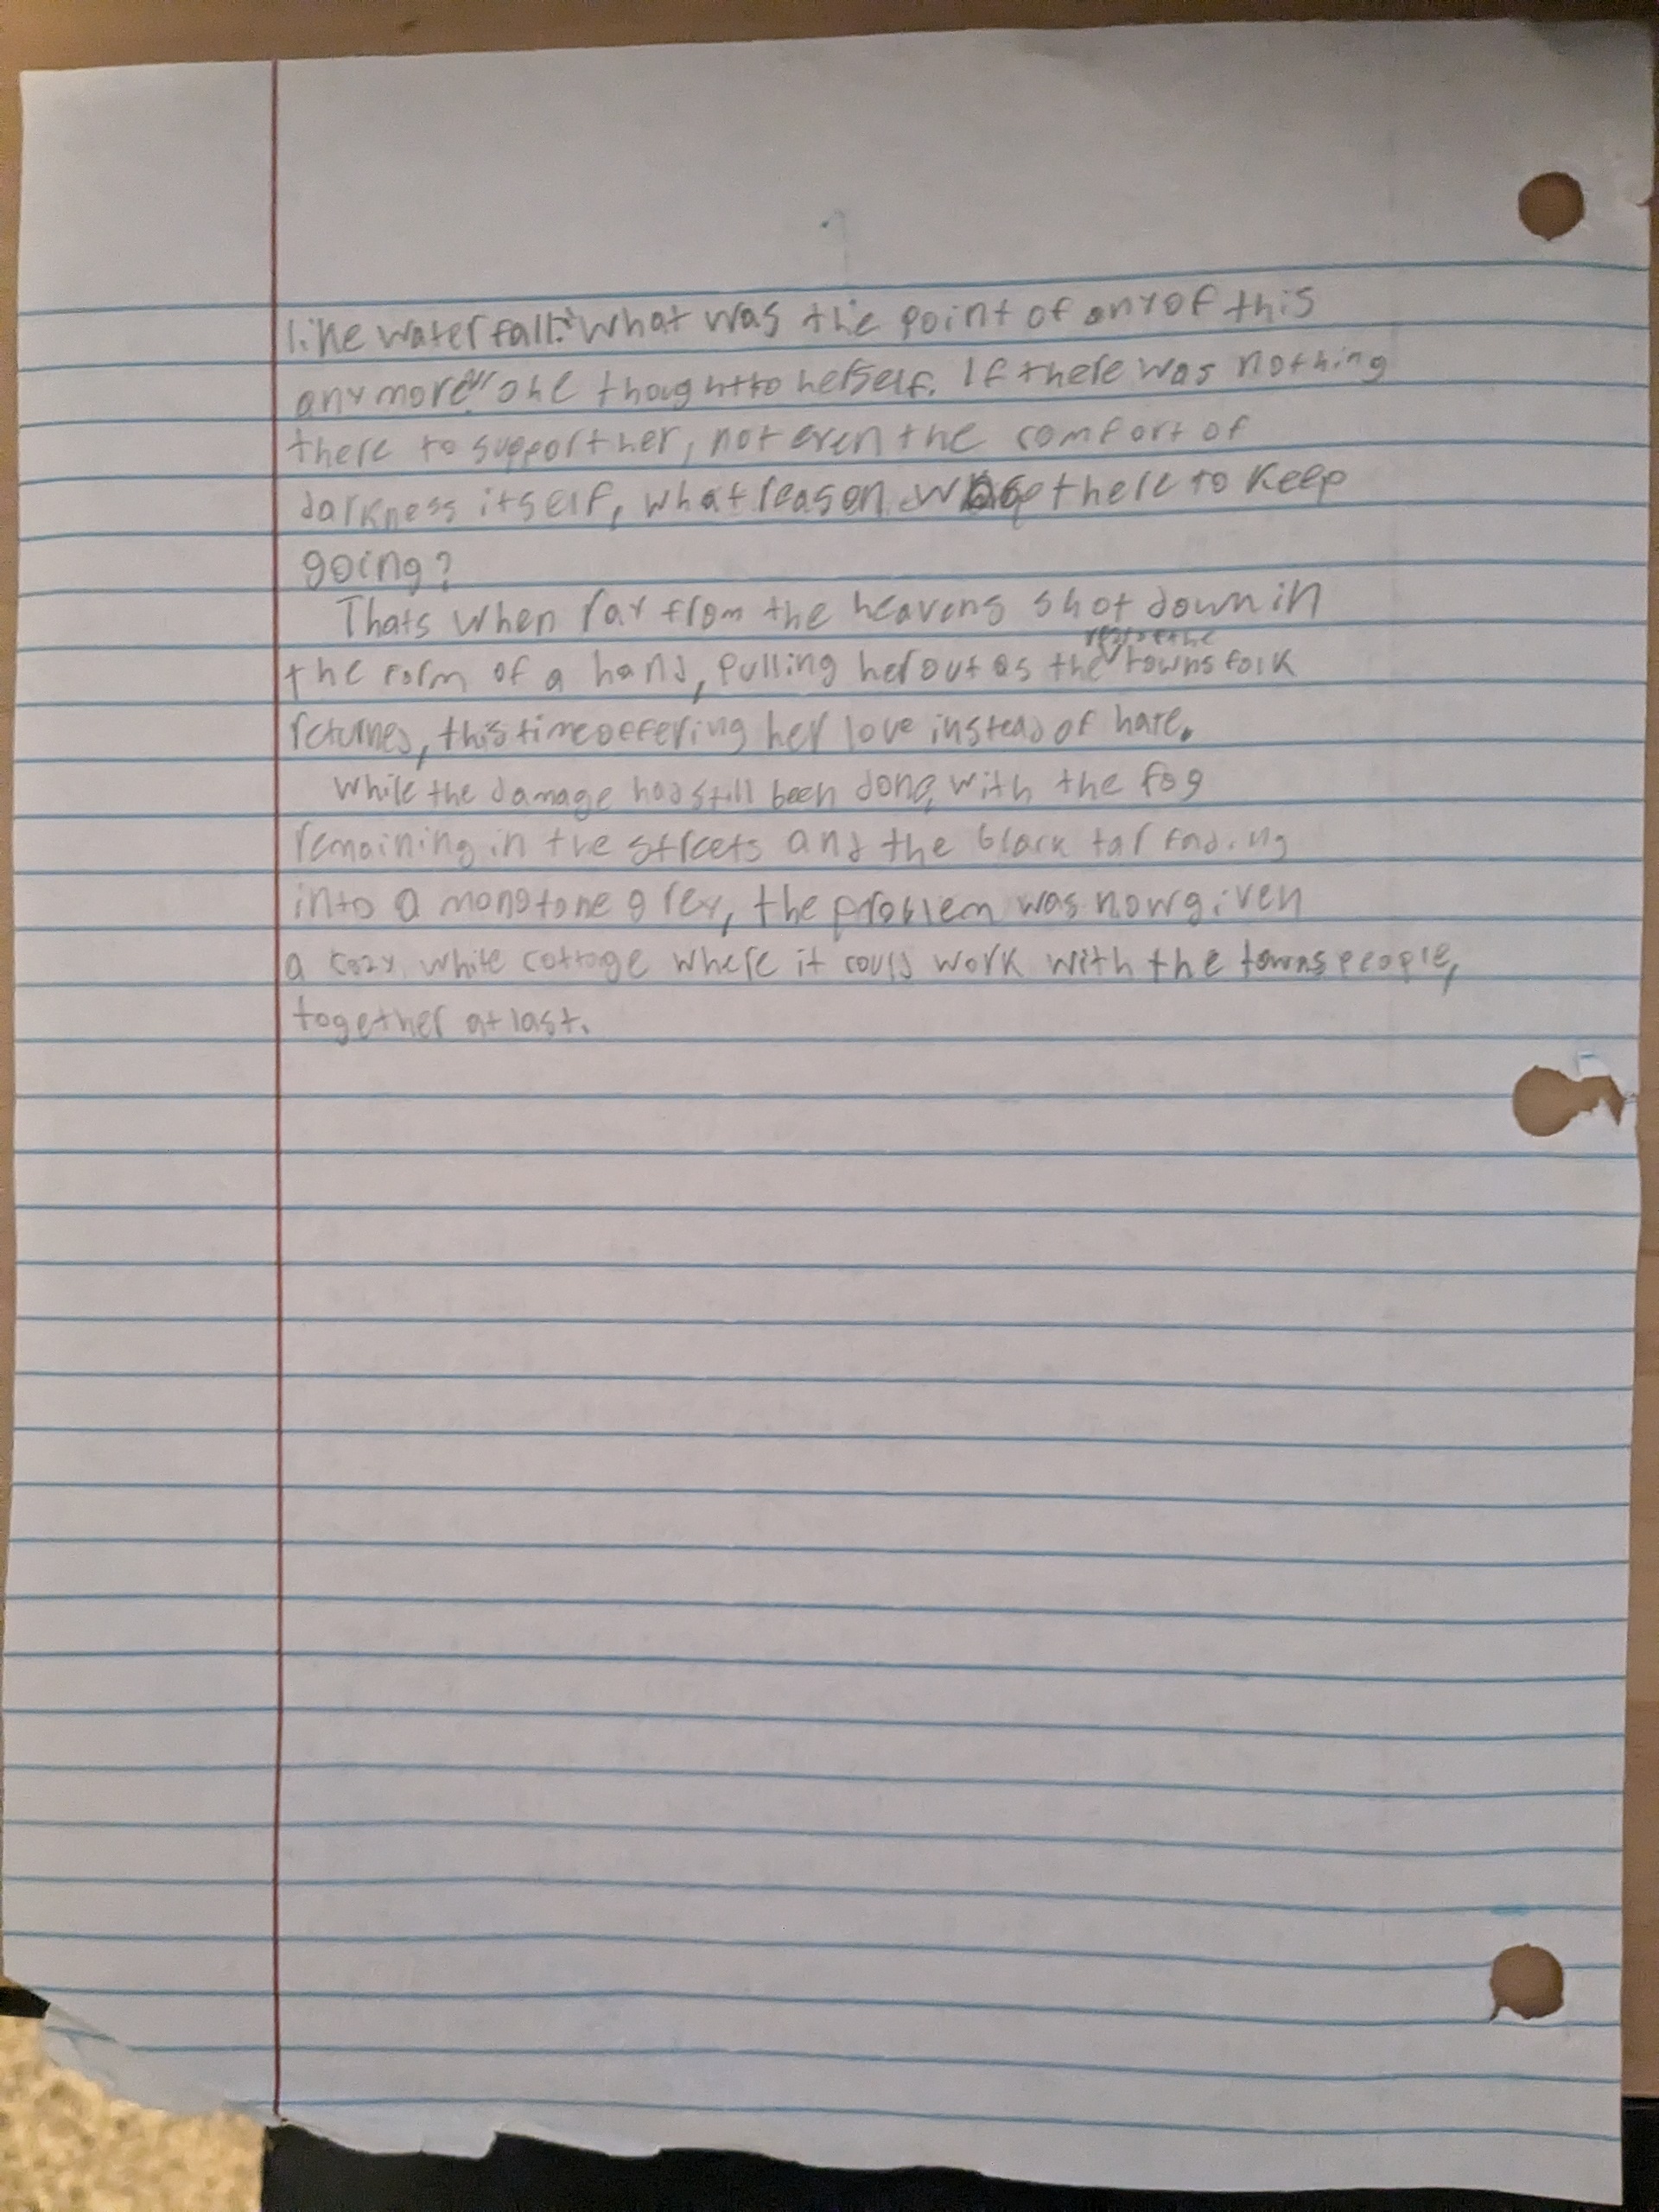 like waterfall. "What was the point of any of this
anymore?" she thought to herself. If there was nothing
there to support her, not even the comfort of
darkness itself, what reason was there to keep
going?
Thats when ray from the heavens shot down in
the form of a hand, pulling her out as the rest of the townsfolk
returned, this time offering her love instead of hate.
While the damage had still been done, with the fog
remaining in the streets and the black tar fading
into a monotone grey, the problem was now given
a cozy white cottage where it could work with the townspeople,
together at last.